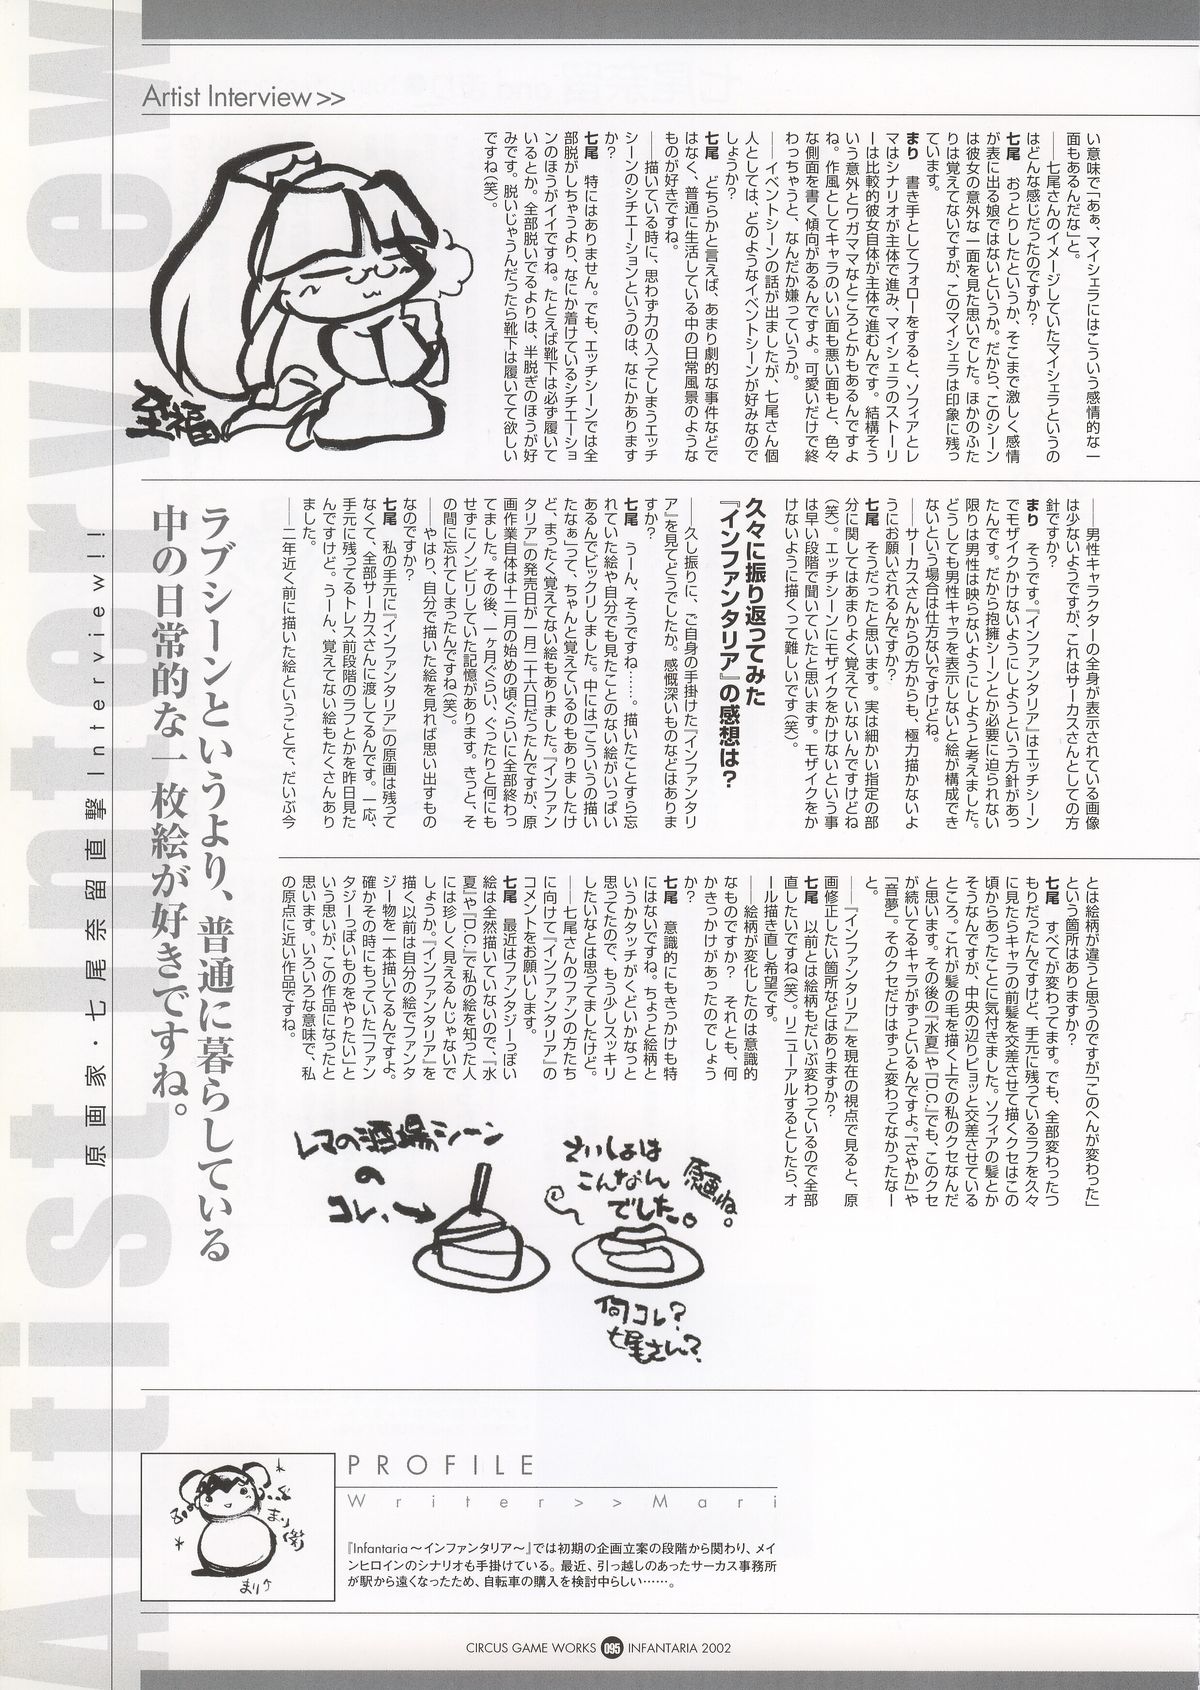 Artist Interview>>
い意味で「あぁ、マイシェラにはこういう感情的な一
面もあるんだな」と。
――七尾さんのイメージしていたマイシェラというの
はどんな感じだったのですか？
七尾　おっとりしたというか、そこまで激しく感情
が表に出る娘ではないというか。だから、このシーン
は彼女の意外な一面を見た思いでした。ほかのふた
りは覚えてないですが、このマイシェラは印象に残っ
ています。
まり　書き手としてフォローをすると、ソフィアとレ
マはシナリオが主体で進み、マイシェラのストーリ
ーは比較的彼女自体が主体で進むんです。結構そう
いう意外とワガママなところとかもあるんですよ
ね。作風としてキャラのいい面も悪い面もと、色々
な側面を書く傾向があるんですよ。可愛いだけで終
わっちゃうと、なんだか嫌っていうか。
――イベントシーンの話が出ましたが、七尾さん個
人としては、どのようなイベントシーンが好みなので
しょうか？
七尾　どちらかと言えば、あまり劇的な事件などで
はなく、普通に生活している中の日常風景のような
ものが好きですね。
――描いている時に、思わず力の入ってしまうエッチ
シーンのシチエーションというのは、なにかあります
か？
七尾　特にはありません。でも、エッチシーンでは全
部脱がしちゃうより、なにか着けているシチエーショ
ンのほうがイイですね。たとえば靴下は必ず履いて
いるとか。全部脱いでるよりは、半脱ぎのほうが好
みです。脱いじゃうんだったら靴下は履いてて欲しい
ですね（笑）。
至福
――男性キャラクターの全身が表示されている画像
は少ないようですが、これはサーカスさんとしての方
針ですか？
まり　そうです。『インファンタリア』はエッチシーン
でモザイクかけないようにしようという方針があっ
たんです。だから抱擁シーンとか必要に迫られない
限りは男性は映らないようにしようと考えました。
どうしても男性キャラを表示しないと絵が構成でき
ないという場合は仕方ないですけどね。
――サーカスさんからの方からも、極力描かないよ
うにお願いされるんですか？
七尾　そうだったと思います。実は細かい指定の部
分に関してはあまりよく覚えていないんですけどね
（笑）。エッチシーンにモザイクをかけないという事
は早い段階で聞いていたと思います。モザイクをか
けないように描くって難しいです（笑）。
久々に振り返ってみた
『インファンタリア』の感想は？
――久し振りに、ご自身の手掛けた『インファンタリ
ア』を見てどうでしたか。感慨深いものなどはありま
すか？
七尾　うーん、そうですね……。描いたことすら忘
れていた絵や自分でも見たことのない絵がいっぱい
あるんでビックリしました。中には「こういうの描い
たなぁ」って、ちゃんと覚えているのもありましたけ
ど、まったく覚えてない絵もありました。『インファン
タリア』の発売日が一月二十六日だったんですが、原
画作業自体は十二月の始めの頃ぐらいに全部終わっ
てました。その後、一ヶ月ぐらい、ぐったりと何にも
せずにノンビリしていた記憶があります。きっと、そ
の間に忘れてしまったんですね（笑）。
――やはり、自分で描いた絵を見れば思い出すもの
なのですか？
七尾　私の手元に『インファンタリア』の原画は残って
なくて、全部サーカスさんに渡してるんです。一応、
手元に残ってるトレス前段階のラフとかを昨日見た
んですけど。うーん、覚えてない絵もたくさんあり
ました。
――二年近く前に描いた絵ということで、だいぶ今
とは絵柄が違うと思うのですが「このへんが変わった」
という箇所はありますか？
七尾　すべてが変わってます。でも、全部変わったつ
もりだったんですけど、手元に残っているラフを久々
に見たらキャラの前髪を交差させて描くクセはこの
頃からあったことに気付きました。ソフィアの髪とか
そうなんですが、中央の辺りピョッと交差させている
ところ。これが髪の毛を描く上での私のクセなんだ
と思います。その後の『水夏』や『D.C.』でも、このクセ
が続いてるキャラがずっといるんですよ。「さやか」や
「音夢」。そのクセだけはずっと変わってなかったなー
と。
――『インファンタリア』を現在の視点で見ると、原
画修正したい箇所などはありますか？
七尾　以前とは絵柄もだいぶ変わっているので全部
直したいですね（笑）。リニューアルするとしたら、オ
ール描き直し希望です。
――絵柄が変化したのは意識的
なものですか？　それとも、何
かきっかけがあったのでしょう
か？
七尾　意識的にもきっかけも特
にはないですね。ちょっと絵柄と
いうかタッチがくどいかなっと
思ってたので、もう少しスッキリ
したいなとは思ってましたけど。
――七尾さんのファンの方たち
に向けて『インファンタリア』の
コメントをお願いします。
七尾　最近はファンタジーっぽい
絵は全然描いていないので、『水
夏』や『D.C.』で私の絵を知った人
には珍しく見えるんじゃないで
しょうか。『インファンタリア』を
描く以前は自分の絵でファンタ
ジー物を一本描いてるんですよ。
確かその時にもっていた「ファン
タジーっぽいものをやりたい」と
いう思いが、この作品になったと
思います。いろいろな意味で、私
の原点に近い作品ですね。
ラブシーンというより、普通に暮らしている
中の日常的な一枚絵が好きですね。
原画家・七尾奈留直撃Interview!!
Artist Interview
レマの酒場シーン
の
コレ、→
さいしょは
こんなん
でした。
原画ね。
何コレ？
七尾さん？
PROFILE
Writer>>Mari
『Infantaria～インファンタリア～』では初期の企画立案の段階から関わり、メイ
ンヒロインのシナリオも手掛けている。最近、引っ越しのあったサーカス事務所
が駅から遠くなったため、自転車の購入を検討中らしい……。
まり
CIRCUS GAME WORKS 095 INFANTARIA 2002